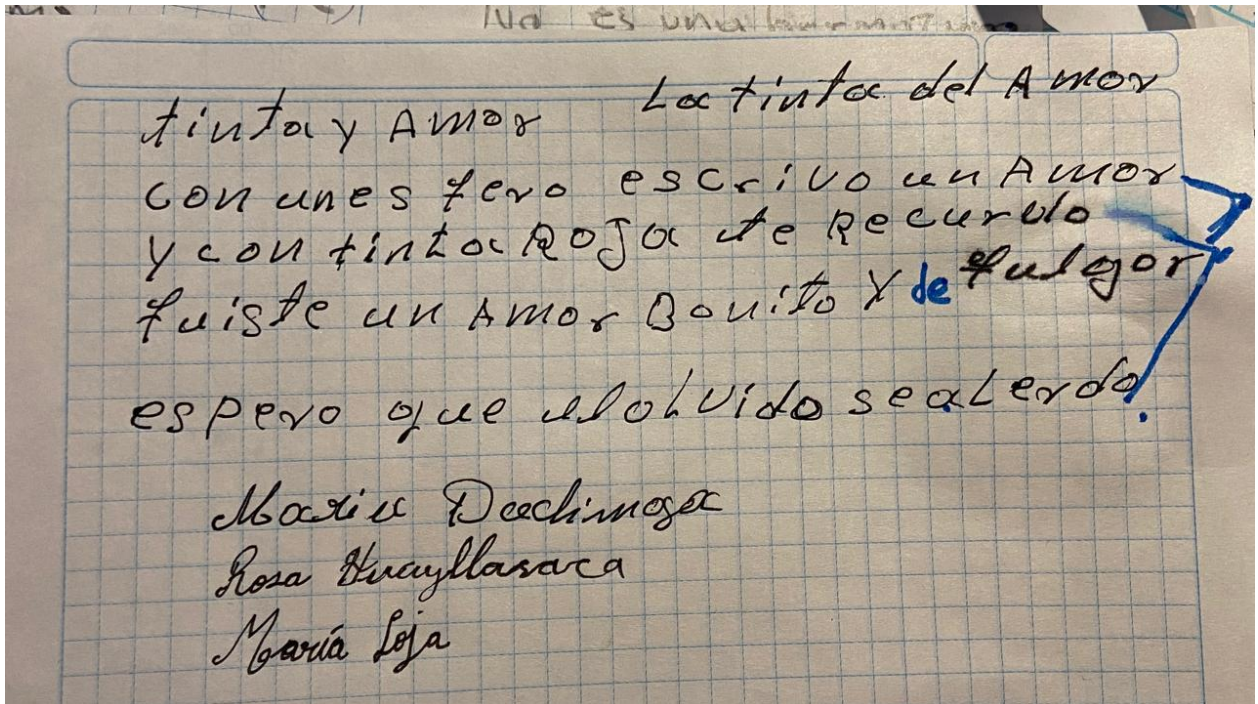 No es una
La tinta del Amor
tinta y Amor
con un esfero escrivo un Amor
y con tinta Roja te Recurdo
fuiste un Amor Bonito y de fulgor
espero que el olvido sea Lerdo.
Rosa Huayllasaca
María Loja